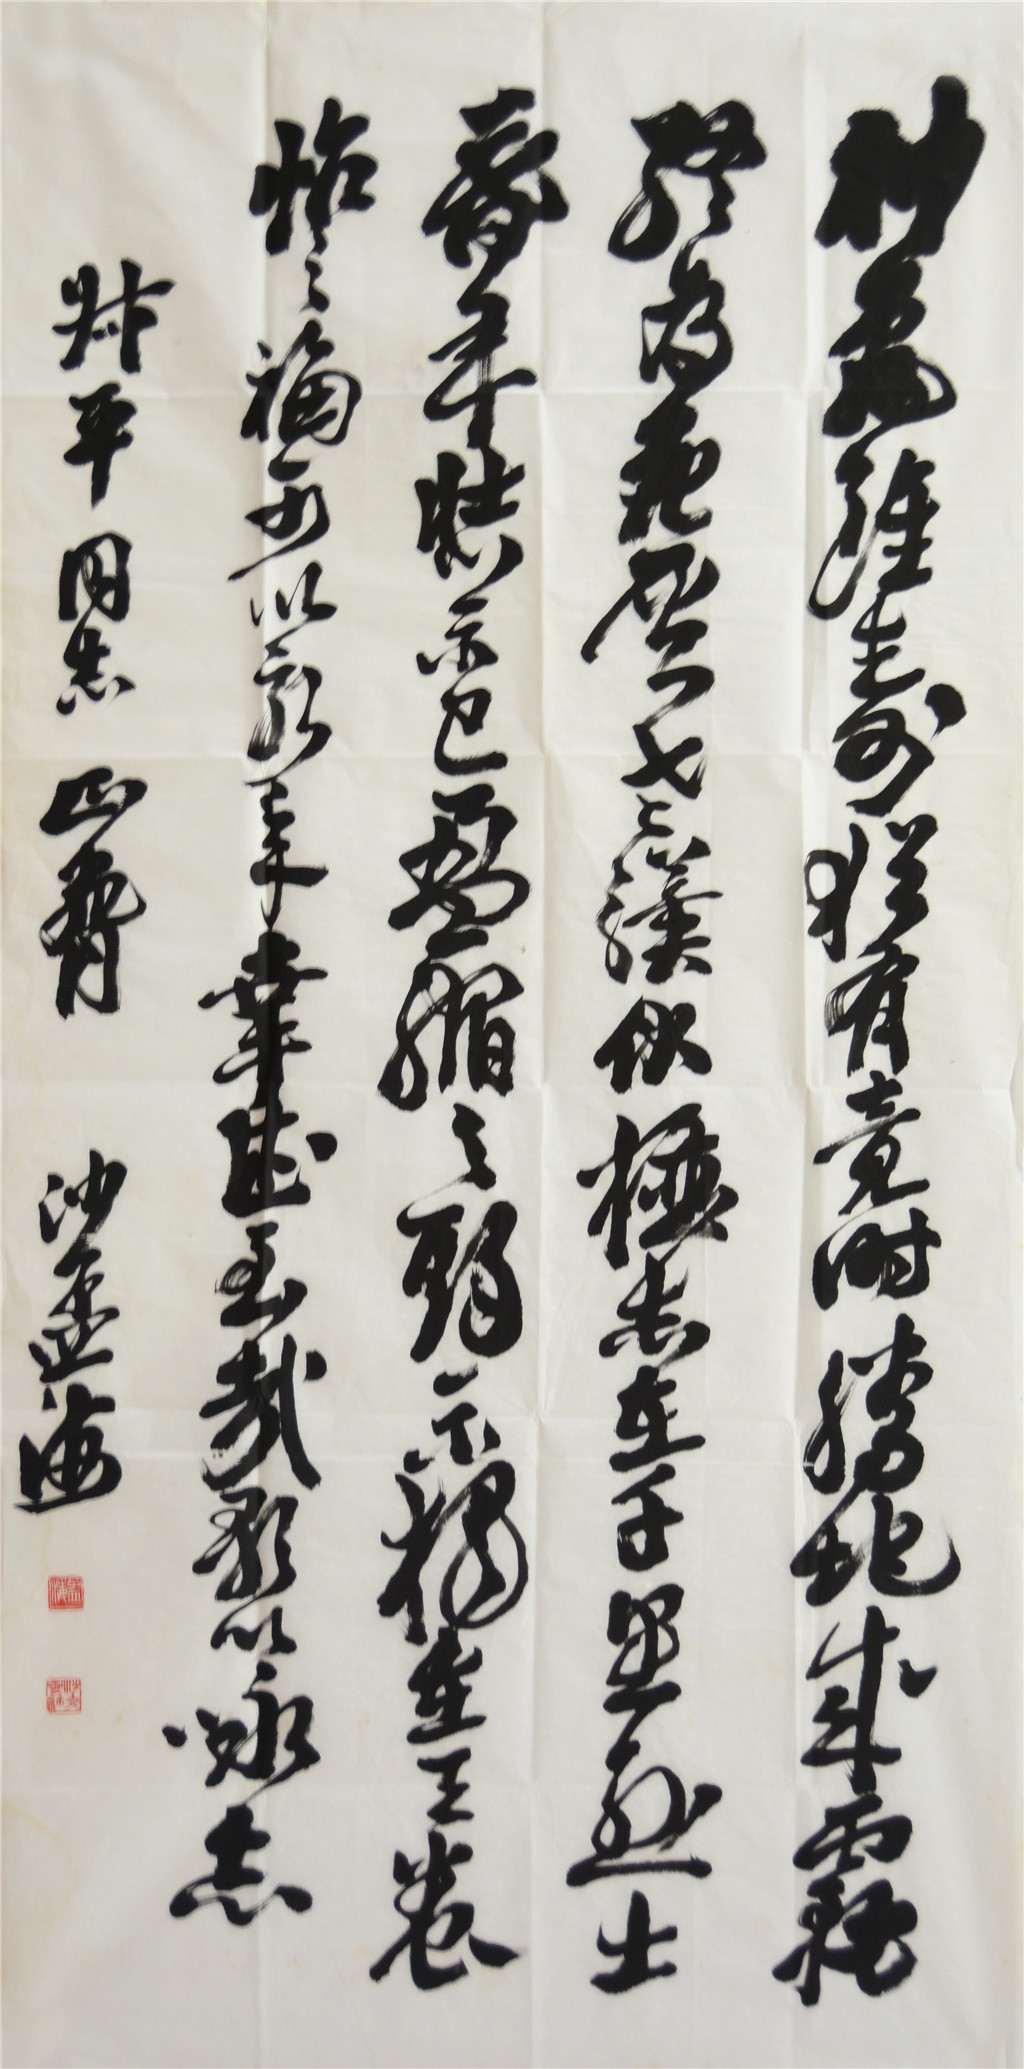 神龜雖壽猶有竟時騰蛇乘霧
終為老驥伏櫪志在千里烈士
暮年壯心不已盈縮之期不獨在天養
怡之福可以永年幸甚至哉歌以咏志
叔平同志正 沙孟海